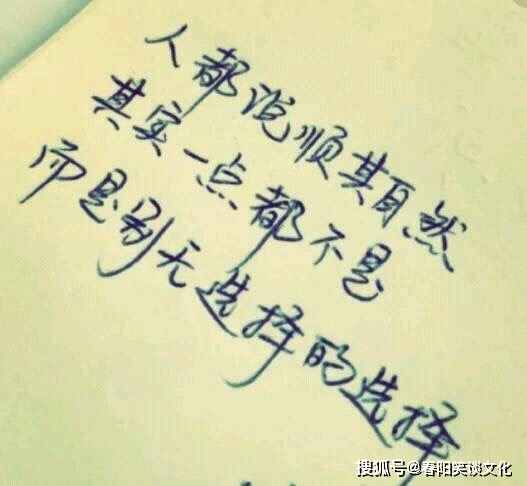 人都说顺其自然
其实一点都不是
而是别无选择的选择
搜狐号@春阳笑谈文化